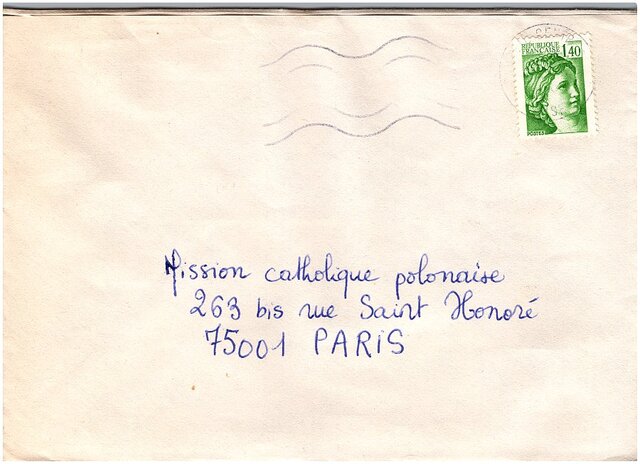 RÉPUBLIQUE
FRANÇAISE
1,40
POSTES
Mission catholique polonaise
263 bis rue Saint Honoré
75001 PARIS